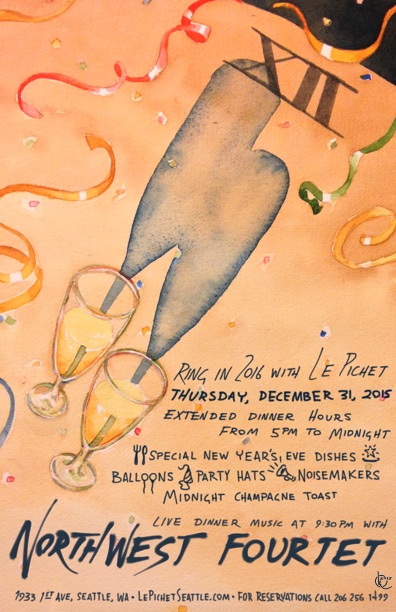 XII
RING IN 2016 WITH LE PICHET
THURSDAY, DECEMBER 31, 2015
EXTENDED DINNER HOURS
FROM 5PM TO MIDNIGHT
SPECIAL NEW YEAR'S EVE DISHES
BALLOONS PARTY HATS NOISEMAKERS
MIDNIGHT CHAMPAGNE TOAST
LIVE DINNER MUSIC AT 9:30PM WITH
NORTHWEST FOURTET
1933 1ST AVE, SEATTLE, WA • LEPICHETSEATTLE.COM • FOR RESERVATIONS CALL 206 256 1499